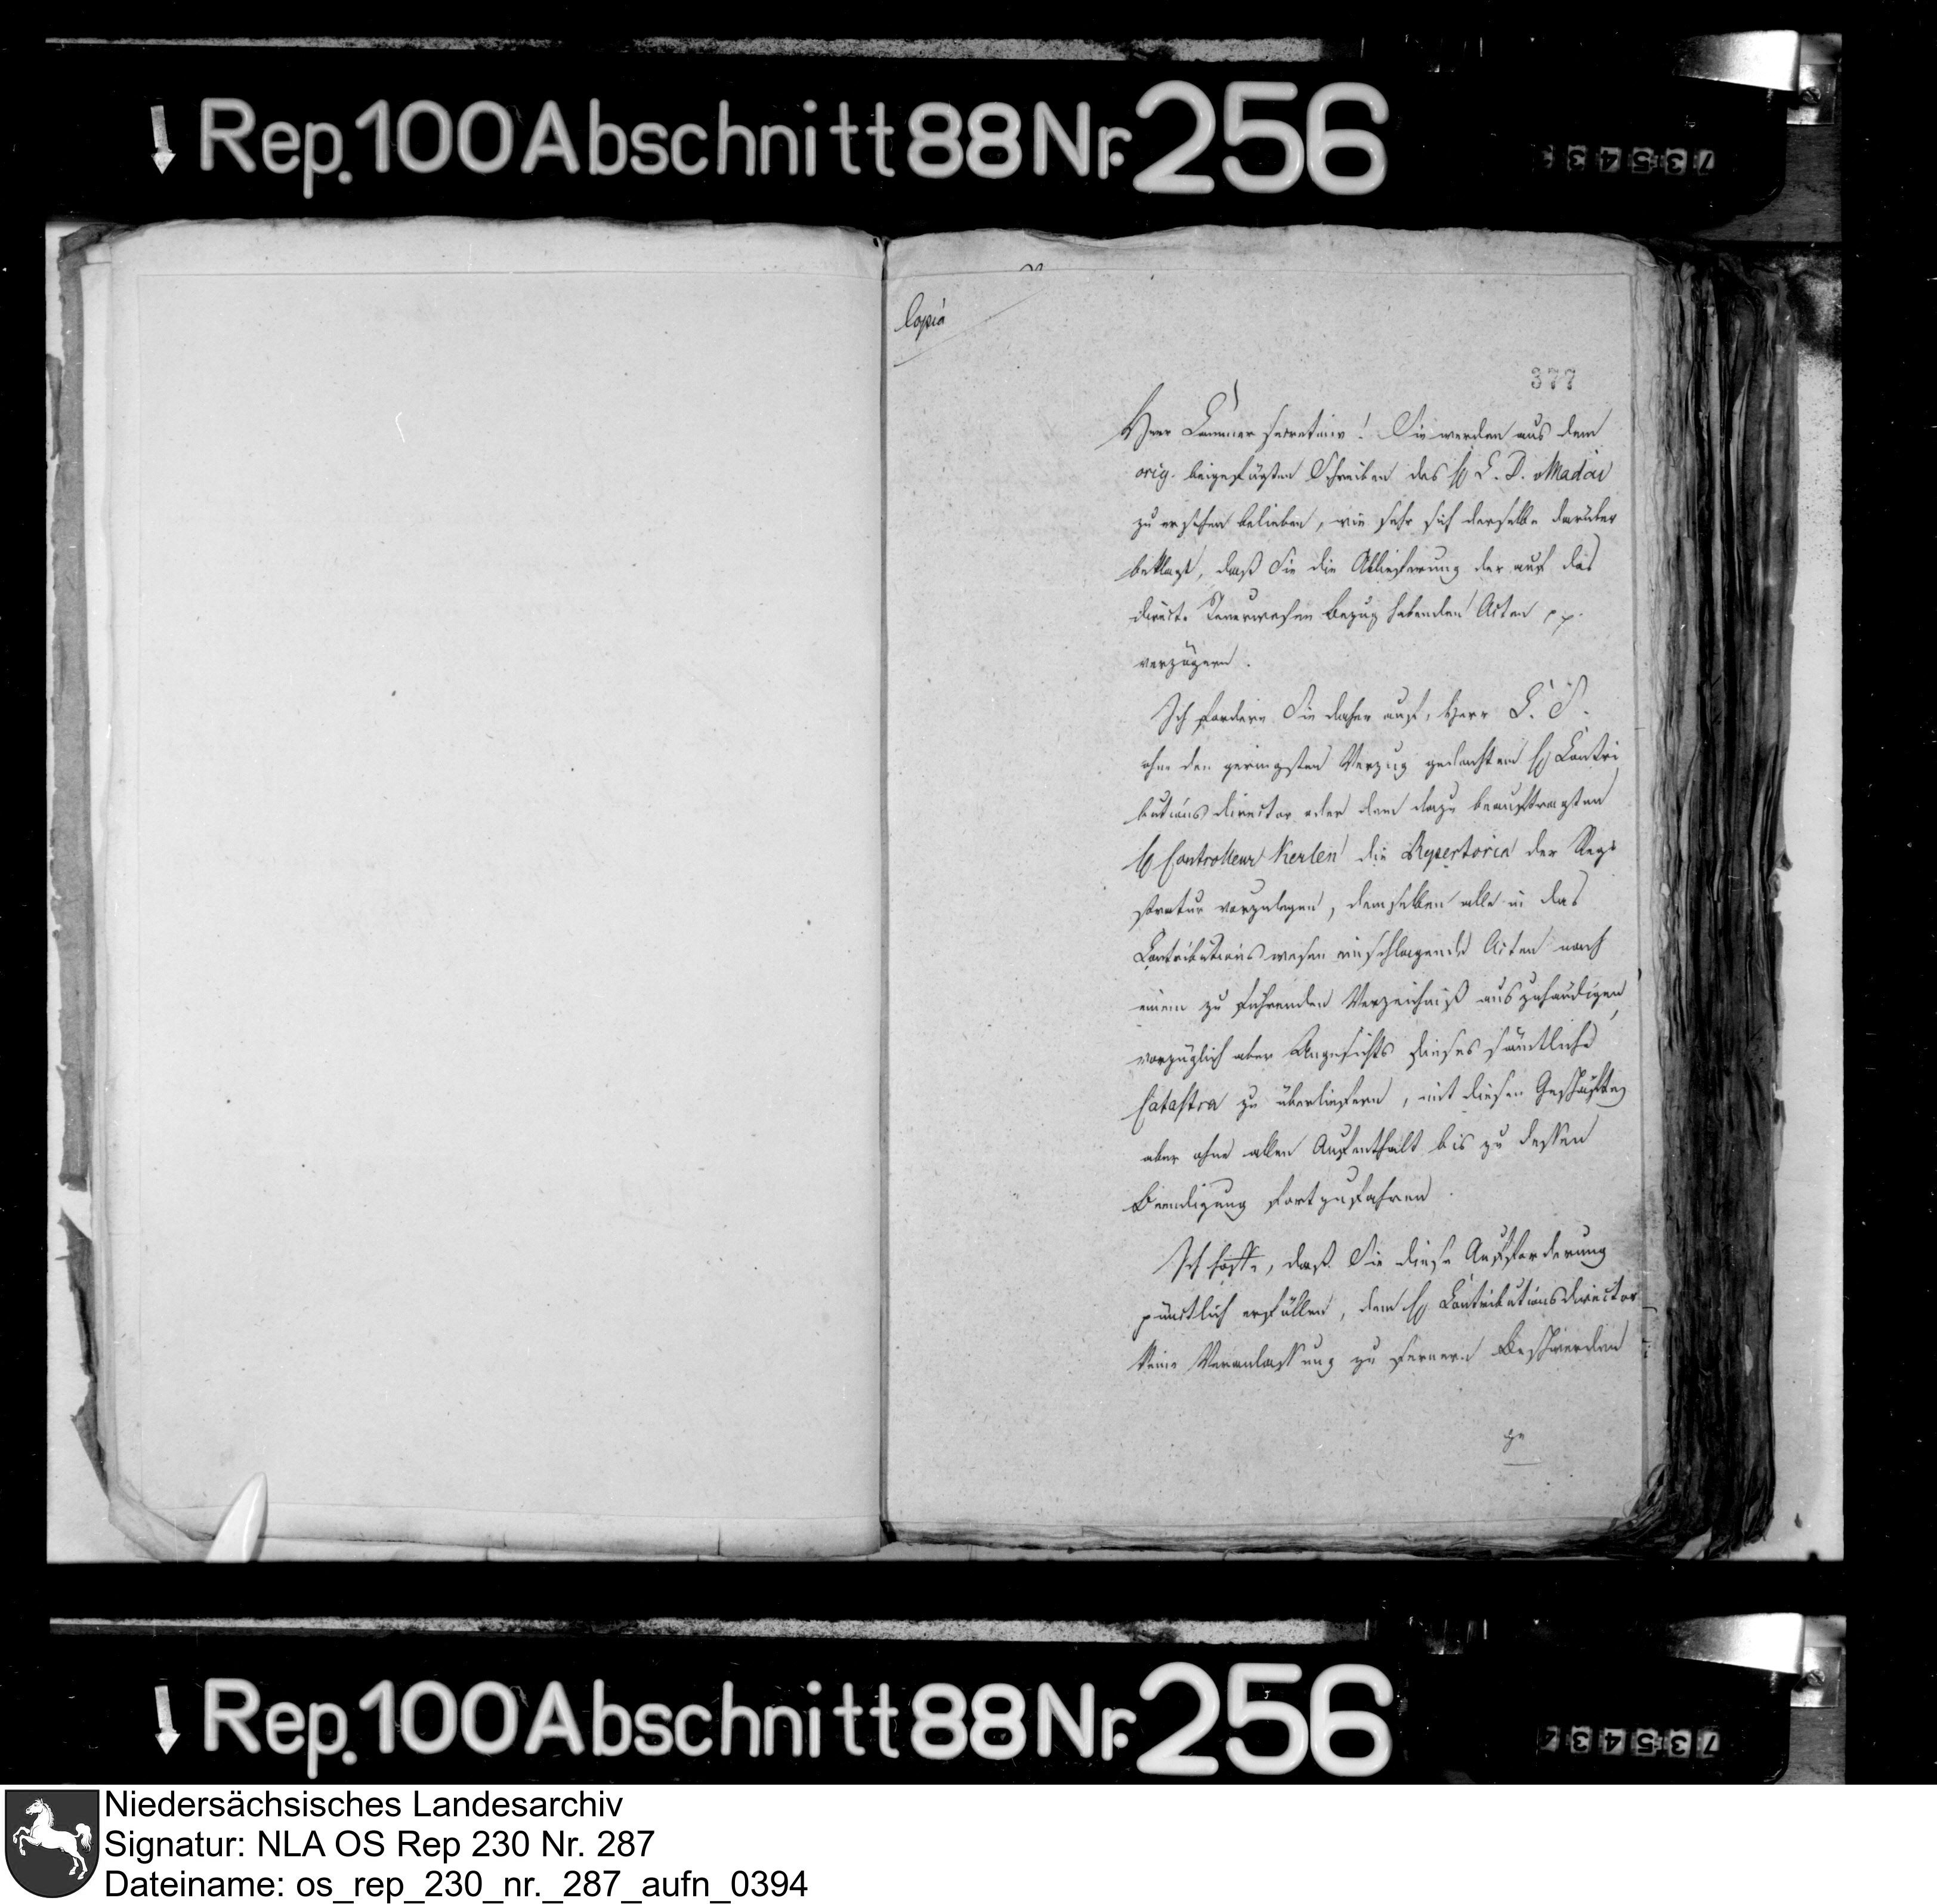 Rep. 100 Abschnitt 88 Nr. 256
Copia
377
Herr Cammersecretair! Sie werden aus dem
orig. beigefügten Schreiben des H C. D. Madai
zu ersehen belieben, wie sehr sich derselbe darüber
beklagt, daß Sie die Ablieferung der auf das
direct. Steuerwesen Bezug habenden Acten pp.
verzögern.
Ich fordere Sie daher auf, Herr C. S.
ohne den geringsten Verzug gedachtem H Contri
butions director oder dem dazu beauftragten
H Controlleur Kerlen die Repertoria der Regi
stratur vorzulegen, demselben alle in das
Contributions wesen einschlagende Acten nach
einem zu führenden Verzeichniß auszuhändigen,
vorzüglich aber Angesichts dieses sämtliche
Catastra zu überliefern, mit diesen Geschäften
aber ohne allen Aufenthalt bis zu dessen
Beendigung fortzufahren.
Ich hoffe, daß Sie diese Aufforderung
pünctlich erfüllen, dem H Contributionsdirector
keine Veranlassung zu fernern Beschwerden
zu
Rep. 100 Abschnitt 88 Nr. 256
Niedersächsisches Landesarchiv
Signatur: NLA OS Rep 230 Nr. 287
Dateiname: os_rep_230_nr._287_aufn_0394